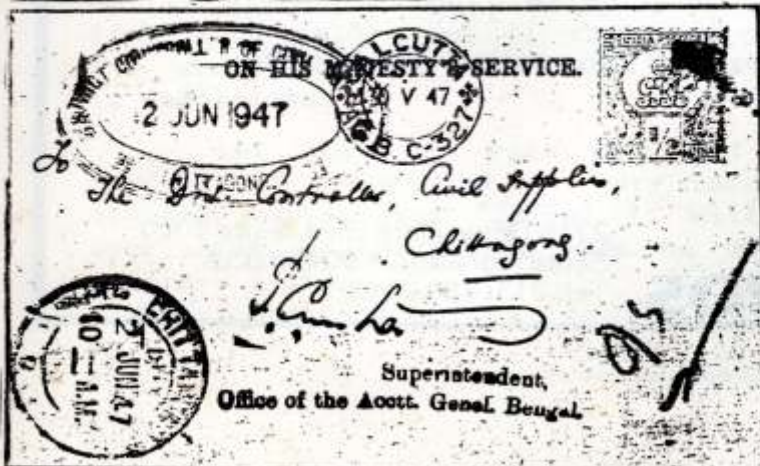 ON HIS MAJESTY'S SERVICE.
CALCUTTA
V 47
C-327
2 JUN 1947
To
The Dist. Controller, Civil Supplies,
Chittagong.
Superintendent,
Office of the Acctt. Genel. Bengal.
CHITTA
2 JUN 47
10 = A.M.